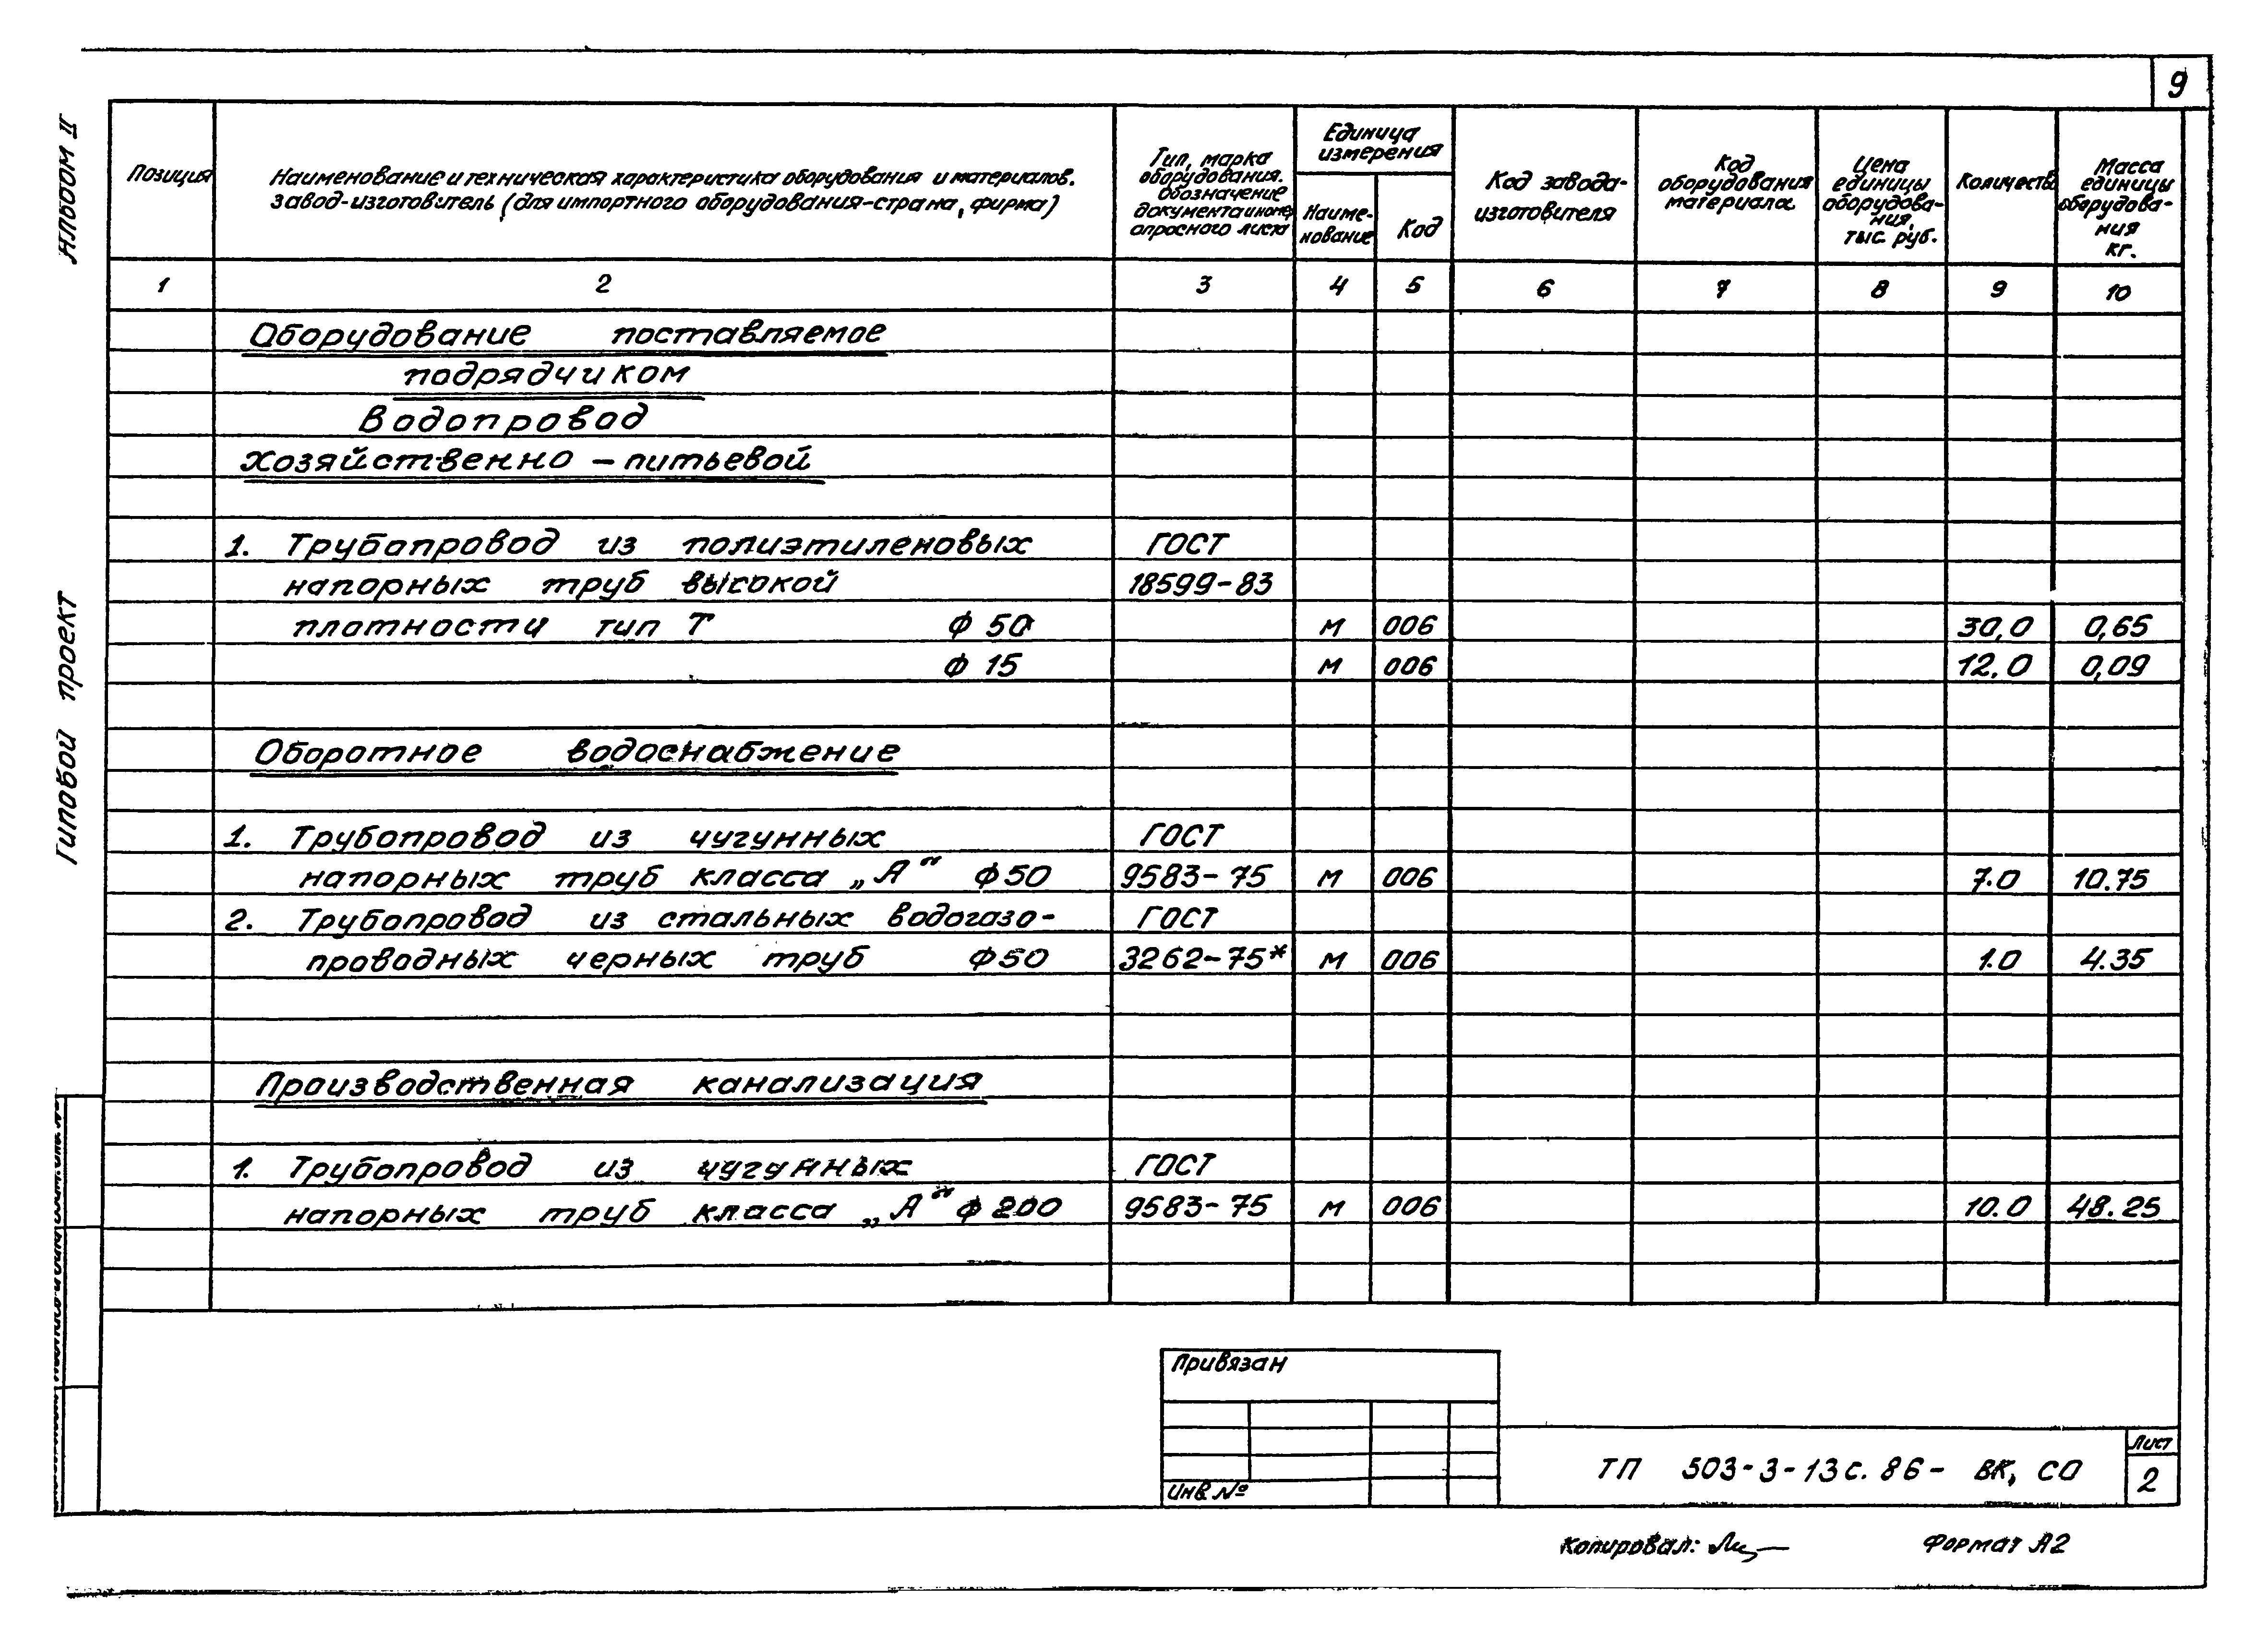 9
Альбом II
Типовой проект
Позиция
Наименование и техническая характеристика оборудования и материалов.
Завод-изготовитель (для импортного оборудования-страна, фирма)
Тип, марка
оборудования.
Обозначение
документа и номер
опросного листа
Единица
измерения
Наиме-
нование
Код
Код завода-
изготовителя
Код
оборудования
материала
Цена
единицы
оборудова-
ния,
тыс. руб.
Количество
Масса
единицы
оборудова-
ния
кг.
1 2 3 4 5 6 7 8 9 10
Оборудование поставляемое
подрядчиком
Водопровод
хозяйственно - питьевой
1. Трубопровод из полиэтиленовых ГОСТ
напорных труб высокой 18599-83
плотности тип Т Ф 50 м 006 30,0 0,65
Ф 15 м 006 12.0 0,09
Оборотное водоснабжение
1. Трубопровод из чугунных ГОСТ
напорных труб класса „А“ Ф50 9583-75 м 006 7.0 10.75
2. Трубопровод из стальных водогазо- ГОСТ
проводных черных труб Ф50 3262-75* м 006 1.0 4.35
Производственная канализация
1. Трубопровод из чугунных ГОСТ
напорных труб класса „А“ Ф 200 9583-75 м 006 10.0 48.25
Привязан
Инв.№
ТП 503-3-13с. 86- ВК, СО
Лист
2
Копировал:
Формат А2